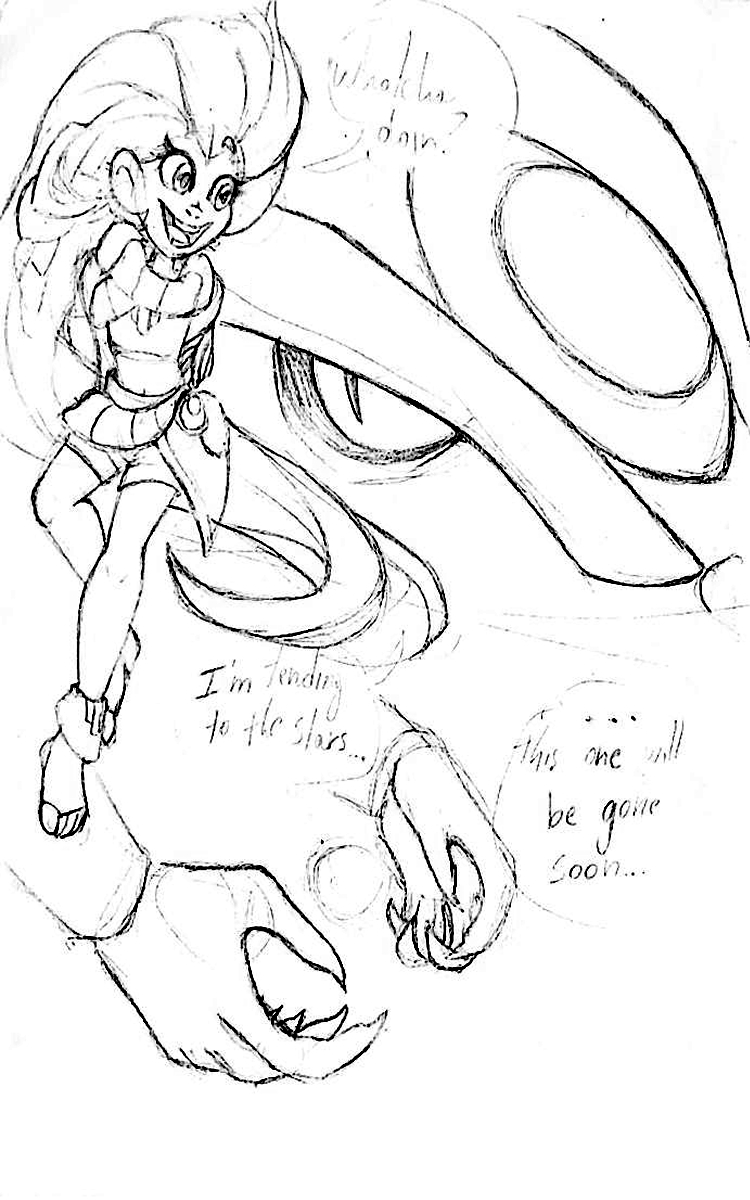 Whatcha
doin?
I'm tending
to the stars...
...
this one will
be gone
soon...